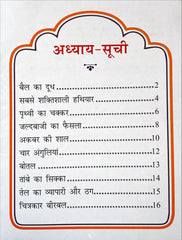 अध्याय-सूची
बैल का दूध.....................................2
सबसे शक्तिशाली हथियार....................4
पृथ्वी का चक्कर..............................6
जल्दबाजी का फैसला........................8
अकबर की शाल..............................10
चार अंगुलियां.................................12
बोतल...........................................13
तांबे का सिक्का..............................14
तेल का व्यापारी और ठग...................15
चित्रकार बीरबल..............................16